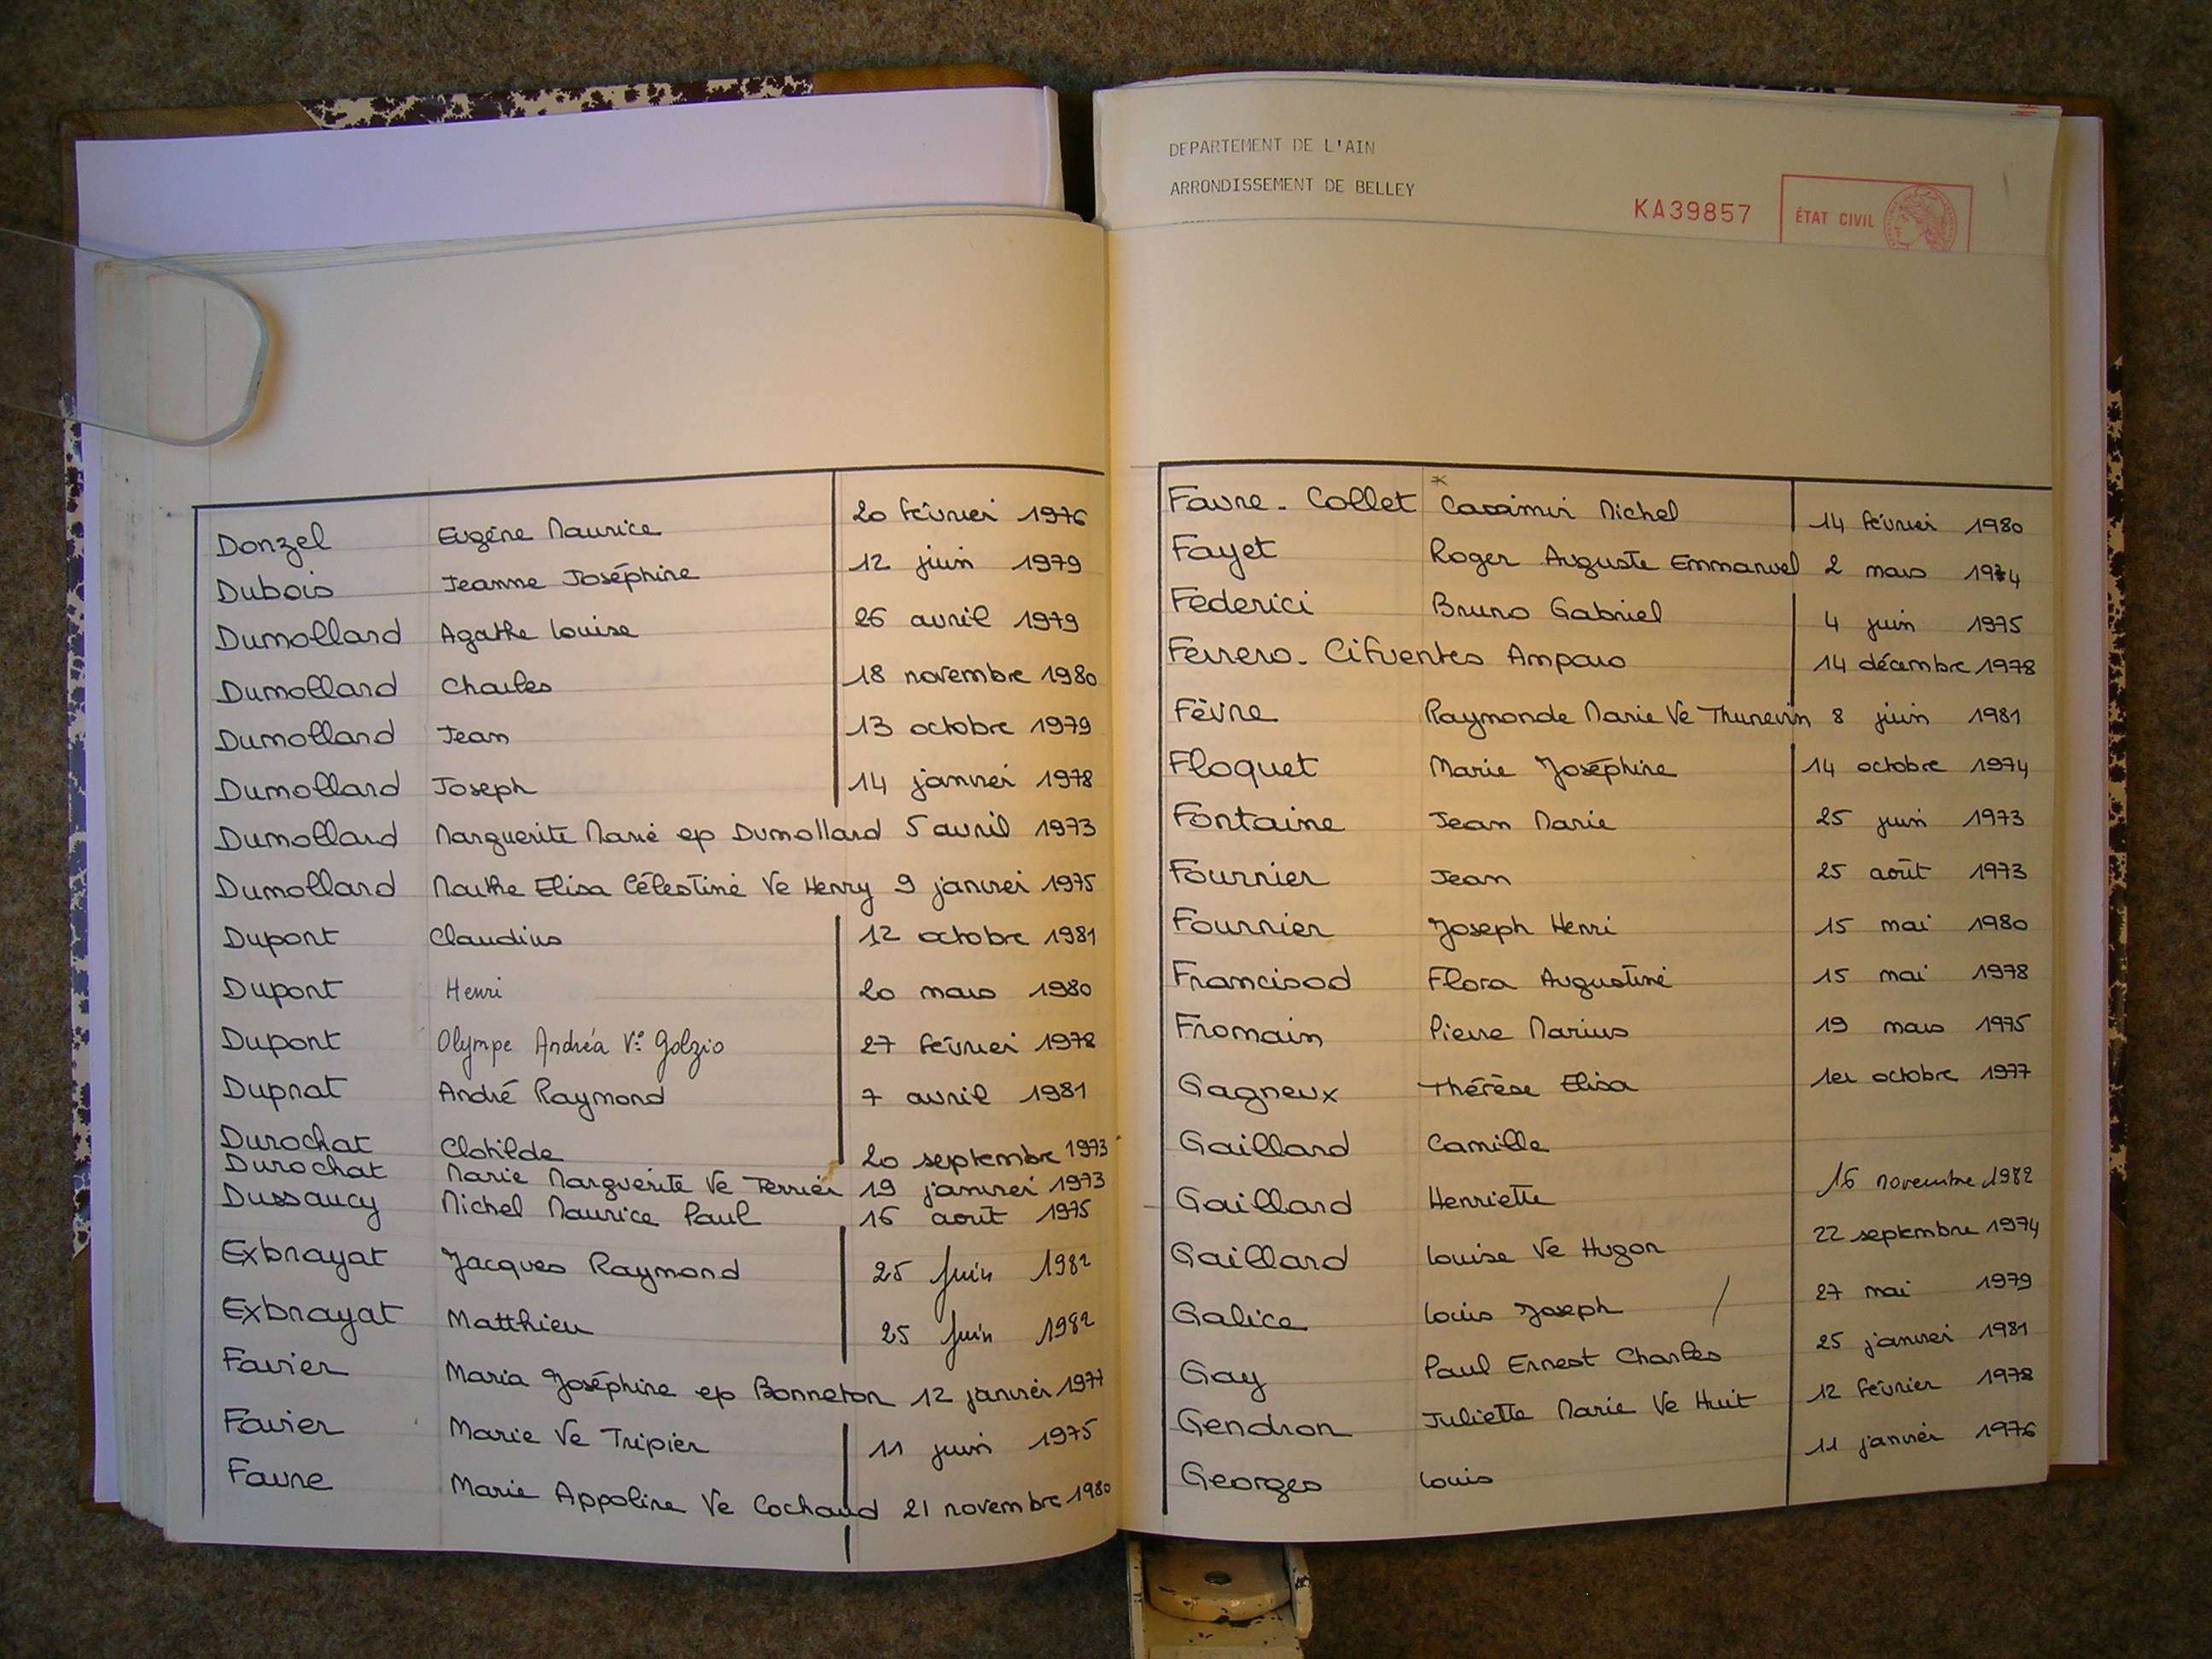 DEPARTEMENT DE L'AIN
ARRONDISSEMENT DE BELLEY
KA39857
ÉTAT CIVIL
Donzel Eugène Maurice 20 février 1976
Dubois Jeanne Joséphine 12 juin 1979
Dumollard Agathe Louise 26 avril 1979
Dumollard Charles 18 novembre 1980
Dumollard Jean 13 octobre 1979
Dumollard Joseph 14 janvier 1978
Dumollard Marguerite Marie ep Dumollard 5 avril 1973
Dumollard Marthe Elisa Célestine Ve Henry 9 janvier 1975
Dupont Claudius 12 octobre 1981
Dupont Henri 20 mars 1980
Dupont Olympe Andréa Ve Golzio 27 février 1978
Duprat André Raymond 7 avril 1981
Durochat Clotilde 20 septembre 1973
Durochat Marie Marguerite Ve Terrier 19 janvier 1973
Dussaucy Michel Maurice Paul 16 août 1975
Exbrayat Jacques Raymond 25 Juin 1982
Exbrayat Matthieu 25 Juin 1982
Favier Maria Joséphine ep Bonneton 12 janvier 1977
Favier Marie Ve Tripier 11 juin 1975
Favre Marie Appoline Ve Cochaud 21 novembre 1980
Favre - Collet Casimir Michel 14 février 1980
Fayet Roger Auguste Emmanuel 2 mars 1974
Féderici Bruno Gabriel 4 juin 1975
Ferrero - Cifuentes Amparo 14 décembre 1978
Fèvre Raymonde Marie Ve Thunevin 8 juin 1981
Floquet Marie Joséphine 14 octobre 1974
Fontaine Jean Marie 25 juin 1973
Fournier Jean 25 août 1973
Fournier Joseph Henri 15 mai 1980
Francisod Flora Augustine 15 mai 1978
Fromain Pierre Marius 19 mars 1975
Gagneux Thérèse Elisa 1er octobre 1977
Gaillard Camille
Gaillard Henriette 16 novembre 1982
Gaillard Louise Ve Hugon 22 septembre 1974
Galice Louis Joseph / 27 mai 1979
Gay Paul Ernest Charles 25 janvier 1981
Gendron Juliette Marie Ve Huit 12 février 1978
Georges Louis 11 janvier 1976